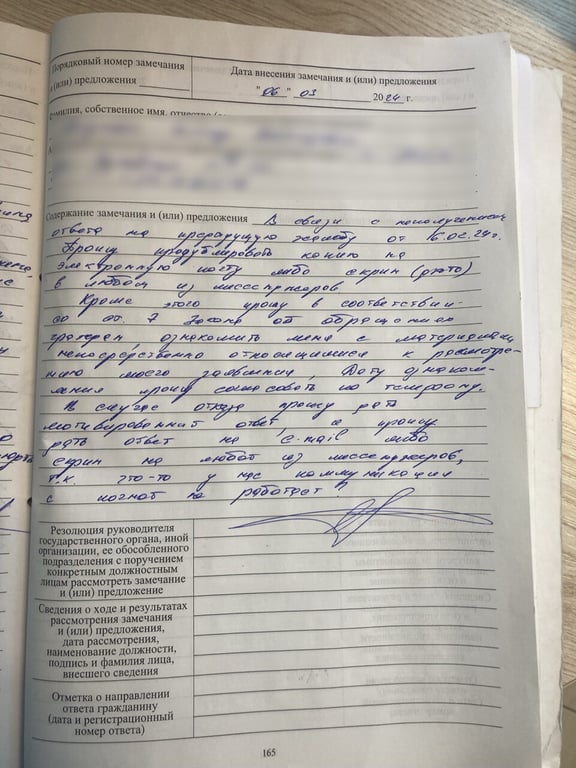 Порядковый номер замечания
и (или) предложения
Дата внесения замечания и (или) предложения
"06" 03 2024 г.
Фамилия, собственное имя, отчество
Содержание замечания и (или) предложения В связи с неполучением
ответа на предыдущую жалобу от 6.02.24г.
Прошу продублировать копию на
электронную почту либо скрин (фото)
в любой из мессенджеров
Кроме этого прошу в соответствии
со ст. 7 Закона об обращениях
граждан, ознакомить меня с материалами
непосредственно относящимися к рассмотре-
нию моего заявления, Дату ознаком-
ления прошу согласовать по телефону.
В случае отказа прошу дать
мотивированный ответ, и прошу
дать ответ на e-mail либо
скрин на любой из мессенджеров,
т.к. что-то у нас коммуникация
с почтой не работает!
Резолюция руководителя
государственного органа, иной
организации, ее обособленного
подразделения с поручением
конкретным должностным
лицам рассмотреть замечание
и (или) предложение
Сведения о ходе и результатах
рассмотрения замечания
и (или) предложения,
дата рассмотрения,
наименование должности,
подпись и фамилия лица,
внесшего сведения
Отметка о направлении
ответа гражданину
(дата и регистрационный
номер ответа)
165